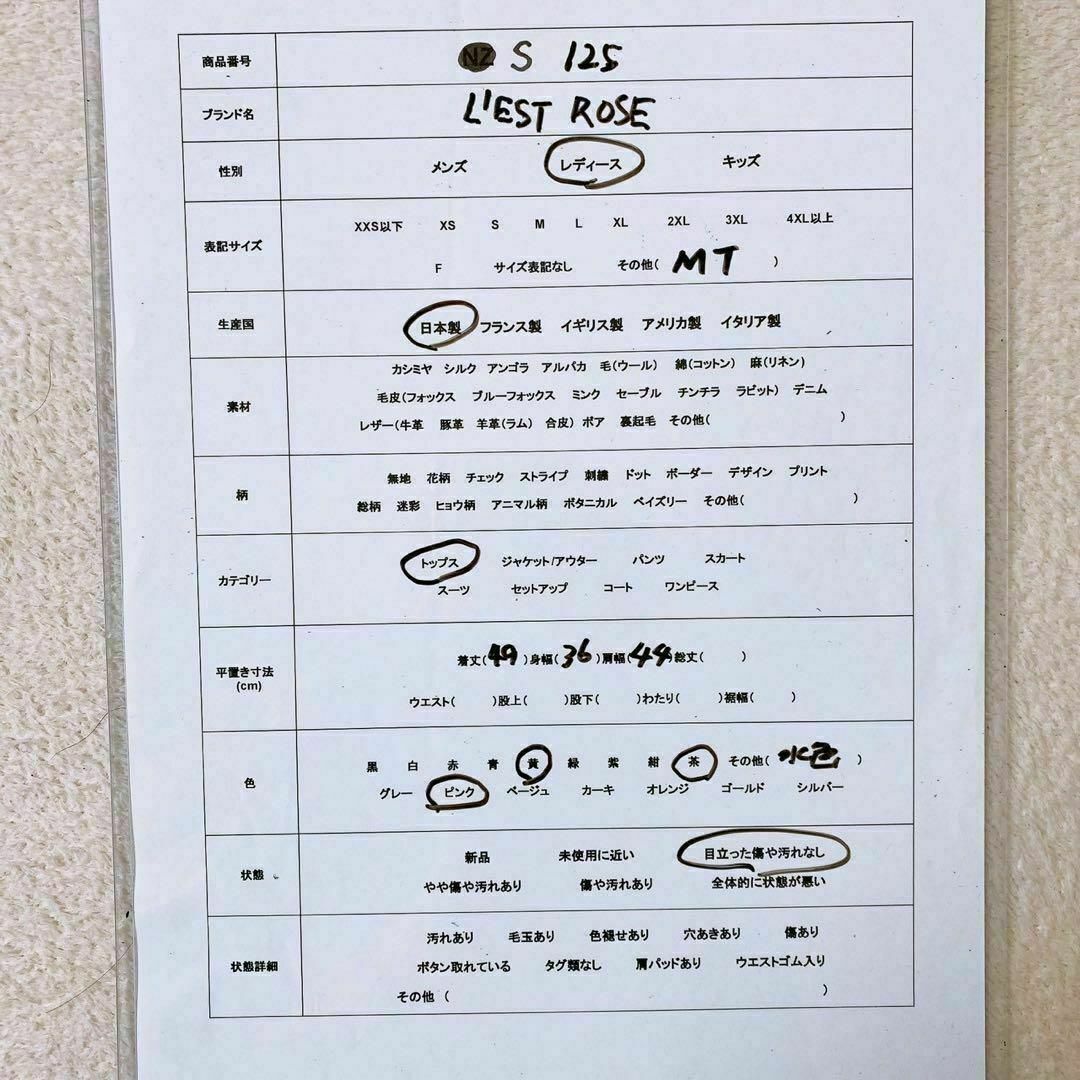 商品番号 NZ S 125
ブランド名 L'EST ROSE
性別 メンズ レディース キッズ
XXS以下 XS S M L XL 2XL 3XL 4XL以上
表記サイズ
F サイズ表記なし その他( MT )
生産国 日本製 フランス製 イギリス製 アメリカ製 イタリア製
カシミヤ シルク アンゴラ アルパカ 毛(ウール) 綿(コットン) 麻(リネン)
素材 毛皮(フォックス ブルーフォックス ミンク セーブル チンチラ ラビット) デニム
レザー(牛革 豚革 羊革(ラム) 合皮) ボア 裏起毛 その他( )
柄 無地 花柄 チェック ストライプ 刺繍 ドット ボーダー デザイン プリント
総柄 迷彩 ヒョウ柄 アニマル柄 ボタニカル ペイズリー その他( )
カテゴリー トップス ジャケット/アウター パンツ スカート
スーツ セットアップ コート ワンピース
平置き寸法 着丈(49)身幅(36)肩幅(44)総丈( )
(cm) ウエスト( )股上( )股下( )わたり( )裾幅( )
色 黒 白 赤 青 黄 緑 紫 紺 茶 その他( 水色 )
グレー ピンク ベージュ カーキ オレンジ ゴールド シルバー
状態 新品 未使用に近い 目立った傷や汚れなし
やや傷や汚れあり 傷や汚れあり 全体的に状態が悪い
汚れあり 毛玉あり 色褪せあり 穴あきあり 傷あり
状態詳細 ボタン取れている タグ類なし 肩パッドあり ウエストゴム入り
その他 ( )